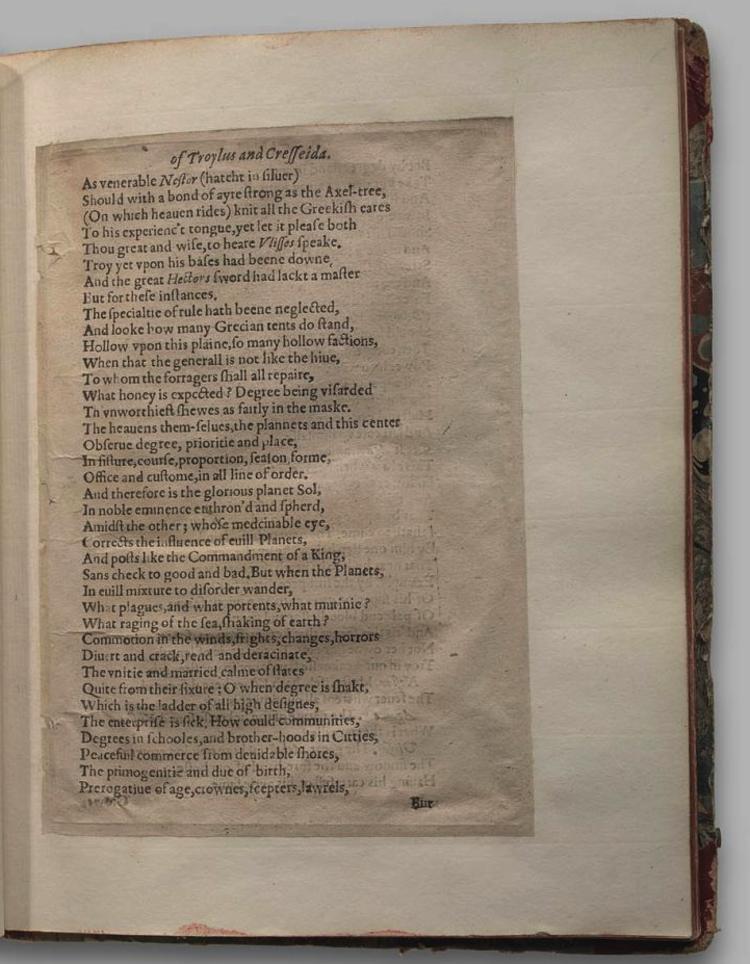 of Troylus and Creſſeida.
As venerable Neſtor (hatcht in ſiluer)
Should with a bond of ayre ſtrong as the Axel-tree,
(On which heauen rides) knit all the Greekiſh eares
To his experienc't tongue,yet let it pleaſe both
Thou great and wiſe,to heare Vliſſes ſpeake.
Troy yet vpon his baſes had beene downe,
And the great Hectors ſword had lackt a maſter
But for theſe inſtances.
The ſpecialtie of rule hath beene neglected,
And looke how many Grecian tents do ſtand,
Hollow vpon this plaine,ſo many hollow factions,
When that the generall is not like the hiue,
To whom the forragers ſhall all repaire,
What honey is expected? Degree being viſarded
Th'vnworthieſt ſhewes as fairly in the maske.
The heauens them-ſelues,the plannets and this center
Obſerue degree, prioritie and place,
Inſiſture,courſe,proportion,ſeaſon,forme,
Office and cuſtome,in all line of order.
And therefore is the glorious planet Sol,
In noble eminence enthron'd and ſpherd,
Amidſt the other; whoſe medcinable eye,
Corrects the influence of euill Planets,
And poſts like the Commandment of a King,
Sans check to good and bad.But when the Planets,
In euill mixture to diſorder wander,
What plagues,and what portents,what mutinie?
What raging of the ſea,ſhaking of earth?
Commotion in the winds,frights,changes,horrors
Diuert and crack,rend and deracinate,
The vnitie and married calme of ſtates
Quite from their fixure: O when degree is ſhakt,
Which is the ladder of all high deſignes,
The enterpriſe is ſick. How could communities,
Degrees in ſchooles,and brother-hoods in Citties,
Peacefull commerce from deuidable ſhores,
The primogenitie and due of birth,
Prerogatiue of age,crownes,ſcepters,lawrels,
But